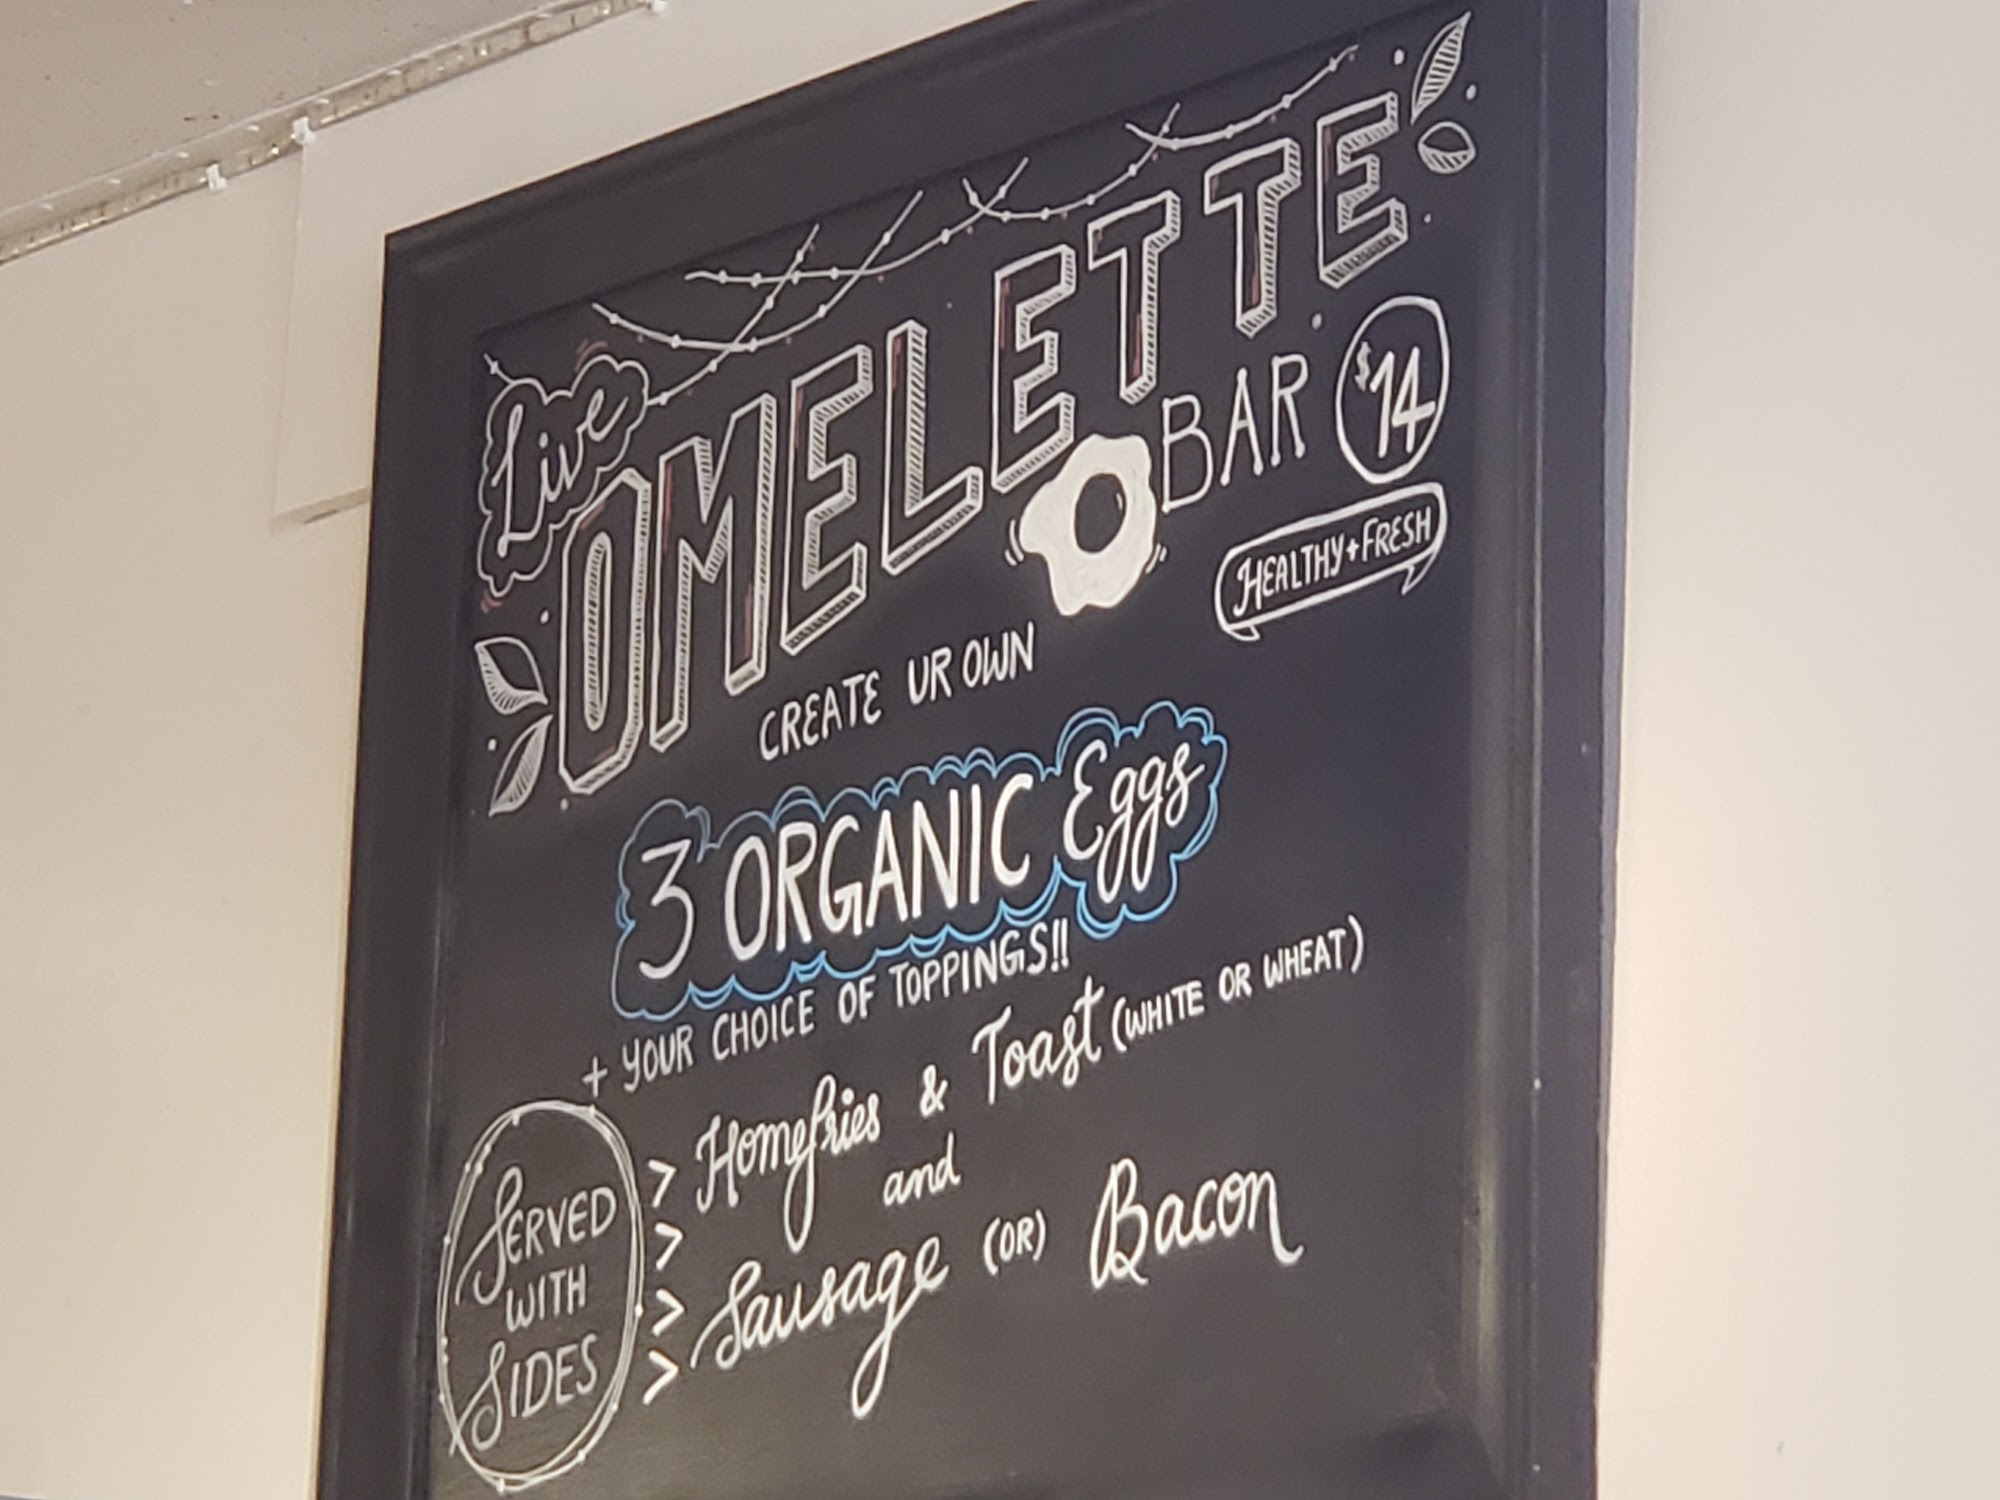 Live
OMELETTE
BAR $14
HEALTHY + FRESH
CREATE UR OWN
3 ORGANIC Eggs
+ YOUR CHOICE OF TOPPINGS!!
SERVED
WITH
SIDES
> Homefries & Toast (WHITE OR WHEAT)
> and
> Sausage (OR) Bacon
>